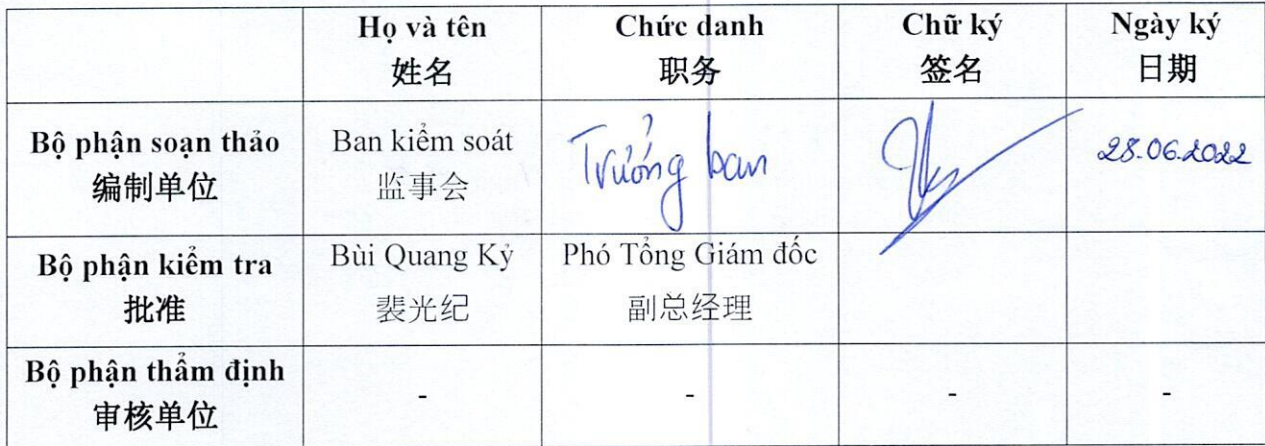 Họ và tên
姓名
Chức danh
职务
Chữ ký
签名
Ngày ký
日期
Bộ phận soạn thảo
编制单位
Ban kiểm soát
监事会
Trưởng ban
28.06.2022
Bộ phận kiểm tra
批准
Bùi Quang Kỷ
裴光纪
Phó Tổng Giám đốc
副总经理
Bộ phận thẩm định
审核单位
-
-
-
-